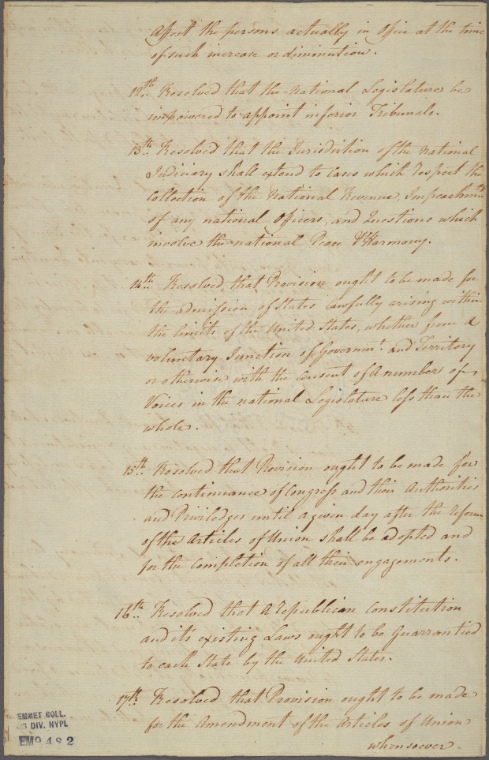 affect the persons actually in Office at the time
of such increase or diminution.
12th. Resolved that the National Legislature be
impowered to appoint inferior Tribunals.
13th. Resolved that the Jurisdiction of the National
Judiciary shall extend to cases which respect the
Collection of the National Revenue, Impeachmts
of any national Officers, and Questions which
involve the national Peace & Harmony.
14th. Resolved, that Provision ought to be made for
the admission of States lawfully arising within
the limits of the United States, whether from a
voluntary Junction of Governmt. and Territory
or otherwise with the consent of a number of
Voices in the national Legislature less than the
whole.
15th. Resolved that Provision ought to be made for
the continuance of Congress and their Authorities
and Priviledges until a given day after the Reform
of the Articles of Union shall be adopted and
for the completion of all their engagements.
16th. Resolved that a Republican Constitution
and its existing Laws ought to be Guarrantied
to each State by the United States.
17th. Resolved that Provision ought to be made
for the Amendment of the Articles of Union
whensoever.
EMMET COLL.
DIV. NYPL
EM9482